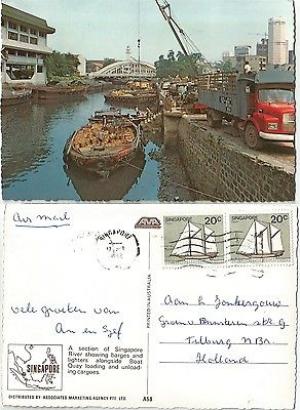 Air mail
AMA
SINGAPORE
SINGAPORE 20c
SINGAPORE 20c
vele groeten van
An en Sjef
PRINTED IN AUSTRALIA
Aan
Tilburg N.Br.
Holland
A section of Singapore
River showing barges and
lighters alongside Boat
Quay loading and unload-
ing cargoes.
SINGAPORE
DISTRIBUTED BY: ASSOCIATED MARKETING AGENCY PTE. LTD.
A58